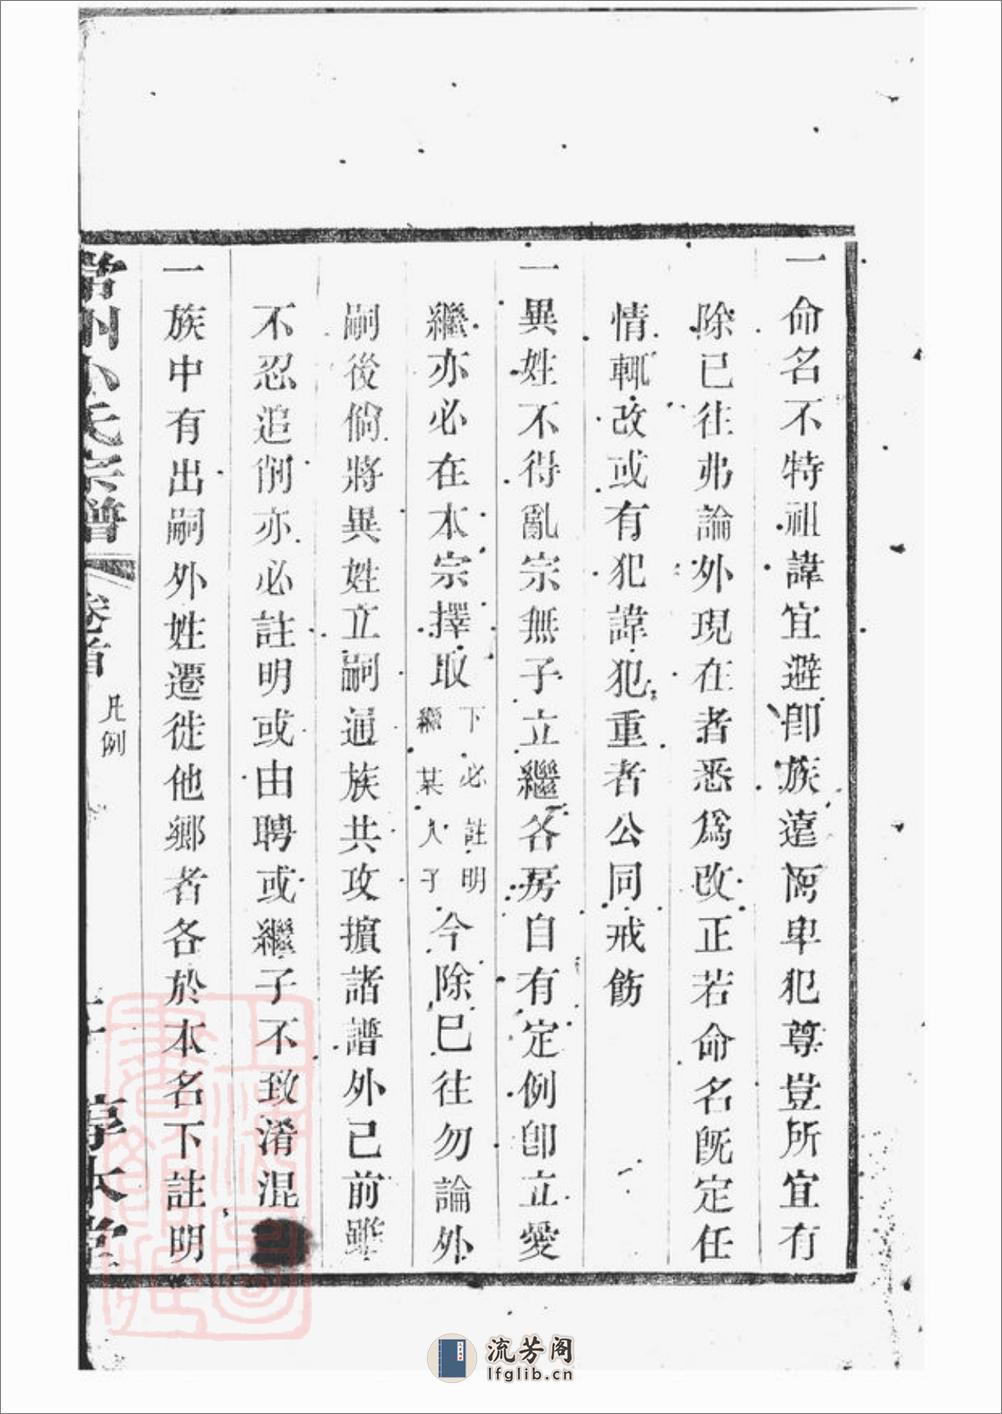 一命名不特祖諱宜避卽族遠而卑犯尊豈所宜有
除已往弗論外現在者悉爲改正若命名旣定任
情輒改或有犯諱犯重者公同戒飭
一異姓不得亂宗無子立繼各房自有定例卽立愛
繼亦必在本宗擇取下必註明繼某人子今除已往勿論外
嗣後倘將異姓立嗣通族共攻擯諸譜外已前雖
不忍追削亦必註明或由聘或繼子不致淆混
一族中有出嗣外姓遷徙他鄉者各於本名下註明
常州 氏宗譜 卷首 凡例 本堂
流芳阁
lfglib.cn